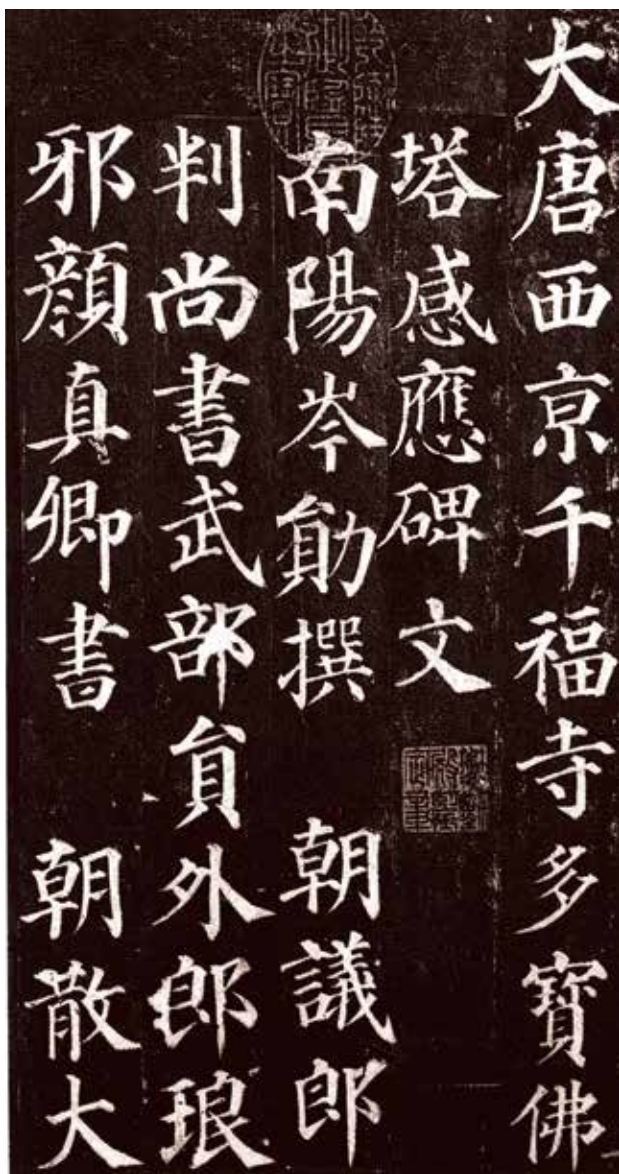 大唐西京千福寺多寶佛
塔感應碑文
南陽岑勛撰 朝議郎
判尚書武部負外郎琅
邪顏真卿書 朝散大